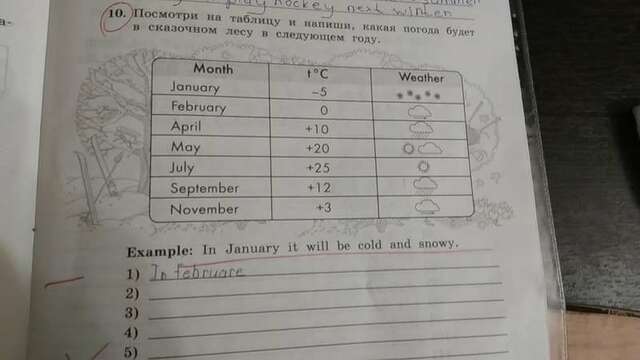 hockey next winter
10. Посмотри на таблицу и напиши, какая погода будет
в сказочном лесу в следующем году.
Month t°C Weather
January –5
February 0
April +10
May +20
July +25
September +12
November +3
Example: In January it will be cold and snowy.
1) In februare
2)
3)
4)
5)